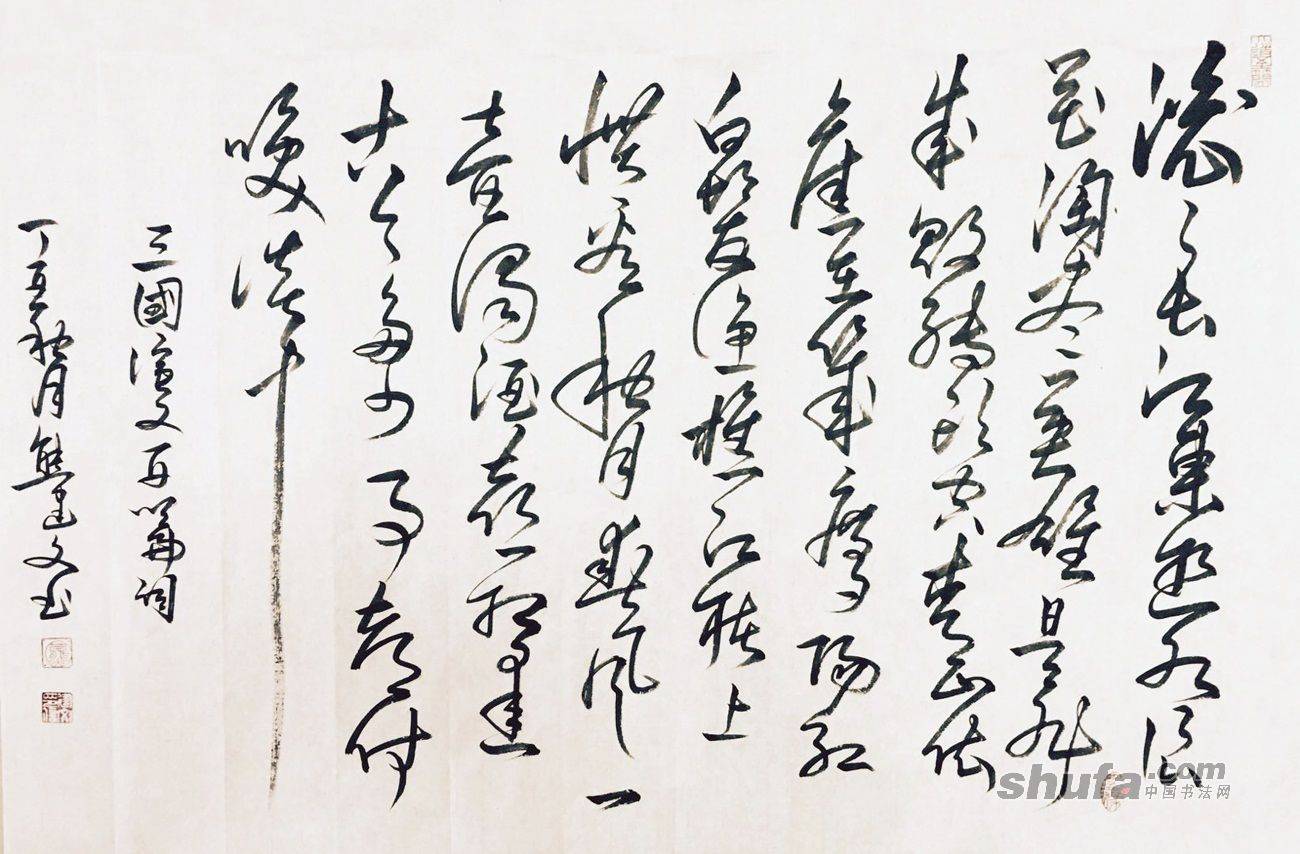 滚〻长江東逝水浪
花淘尽英雄是非
成敗转头空青山依
旧在幾度夕陽红
白髮渔樵江渚上
惯看秋月春风一
壶濁酒喜相逢
古今多少事都付
笑谈中
三國演义开篇词
丁酉秋月熊建文书
shufa.com
中国书法网